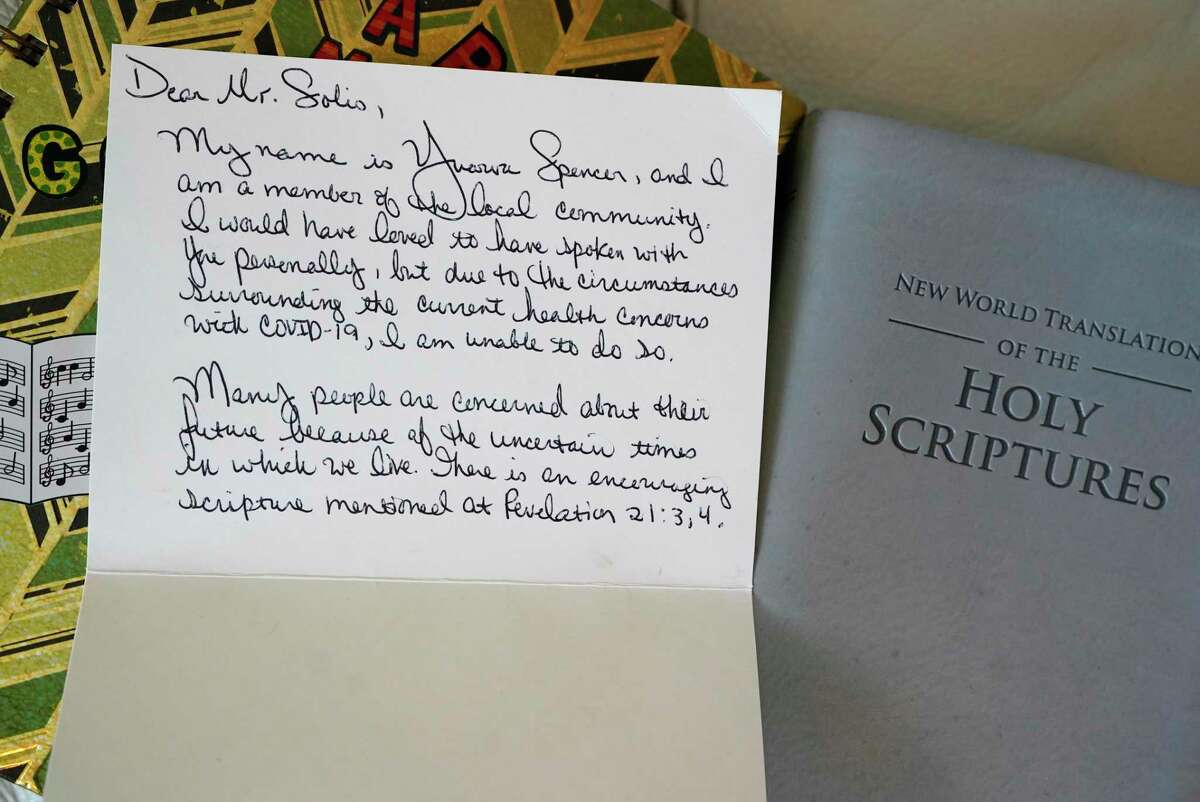 Dear Mr. Solis,
My name is Spencer, and I
am a member of the local community.
I would have loved to have spoken with
you personally, but due to the circumstances
surrounding the current health concerns
with COVID-19, I am unable to do so.
Many people are concerned about their
future because of the uncertain times
in which we live. There is an encouraging
scripture mentioned at Revelation 21:3,4.
NEW WORLD TRANSLATION
OF THE
HOLY
SCRIPTURES